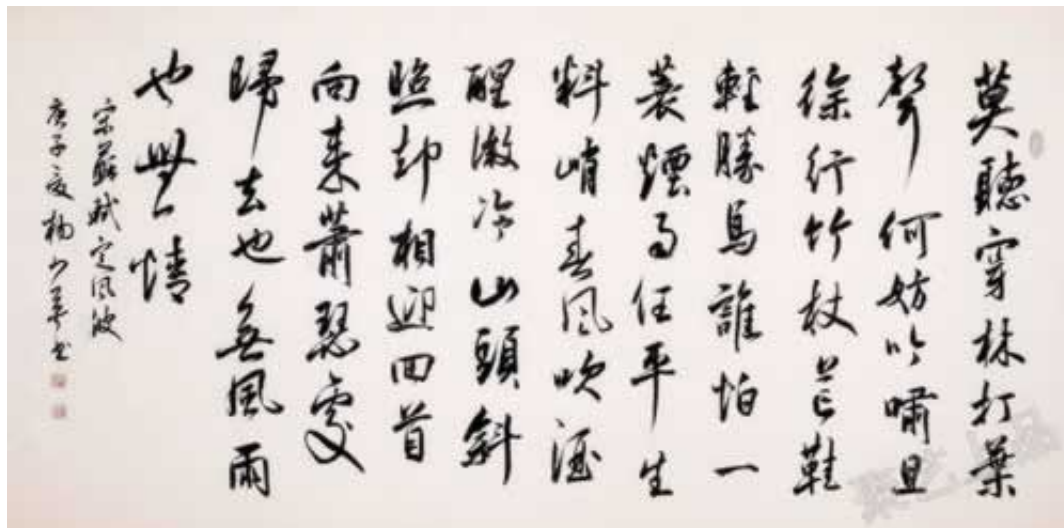 莫聽穿林打葉
聲何妨吟嘯且
徐行竹杖芒鞋
輕勝馬誰怕一
蓑煙雨任平生
料峭春風吹酒
醒微冷山頭斜
照却相迎回首
向来蕭瑟處
歸去也無風雨
也無情
宋蘇軾定風波
庚子夏楊少书